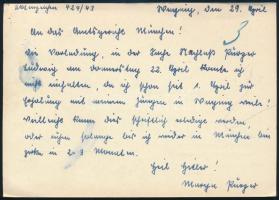 Aktenzeichen 424/43 Wugning, den 29. April
An das Amtsgericht München!
Die Vorladung, in der Sache Nachlaß Rürger
Ludwig am Donnerstag 22. April konnte ich
nicht einhalten, da ich schon seit 1. April zur
Erholung mit meinem Jungen in Wugning weile.
Vielleicht kann dies schriftlich erledigt werden,
oder eben solange bis ich wieder in München bin
zirka in 2-3 Monaten.
Heil Hitler!
Rürger